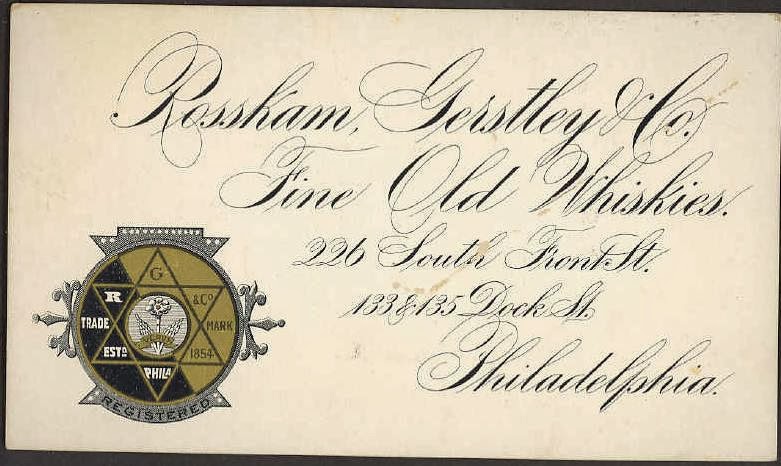 Rosskam, Gerstley & Co.
Fine Old Whiskies.
226 South Front St.
133 & 135 Dock St.
Philadelphia.
G
R & Co
TRADE MARK
ESTD 1854
PHILA
REGISTERED